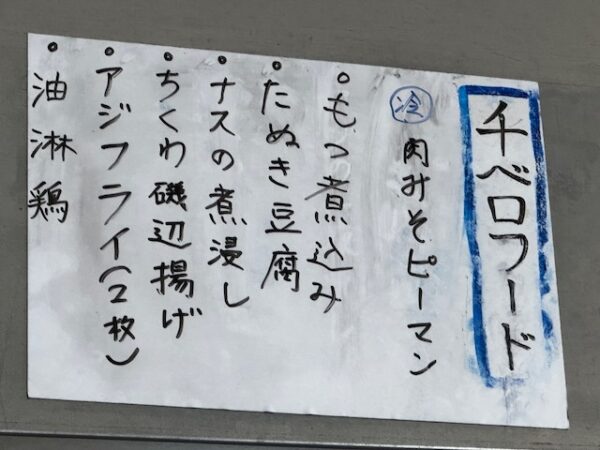 千ベロフード
冷 肉みそピーマン
・もつ煮込み
・たぬき豆腐
・ナスの煮浸し
・ちくわ磯辺揚げ
・アジフライ(2枚)
・油淋鶏